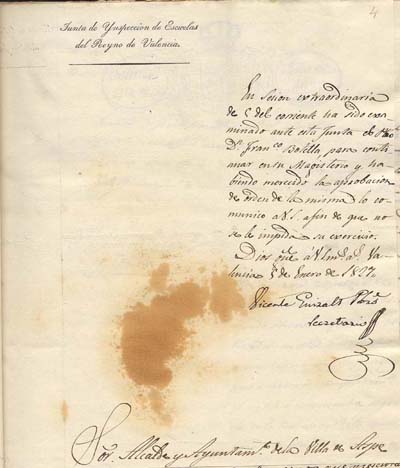 4
Junta de Ynspeccion de Escuelas
del Reyno de Valencia.
En sesion extraordinaria
de 5 del corriente ha sido exa-
minado ante esta Junta el
Dn. Franco. Botella para conti-
nuar en su Magisterio y ha-
biendo merecido la aprobacion
de orden de la misma lo co-
munico a V.S. afin de que no
se le impida su exercicio.
Dios gue. á V. ms. as. Va-
lencia 5 de Enero de 1827.
Vicente
Secretario
Sor. Alcalde y Ayuntamto. de la Villa de Aspe